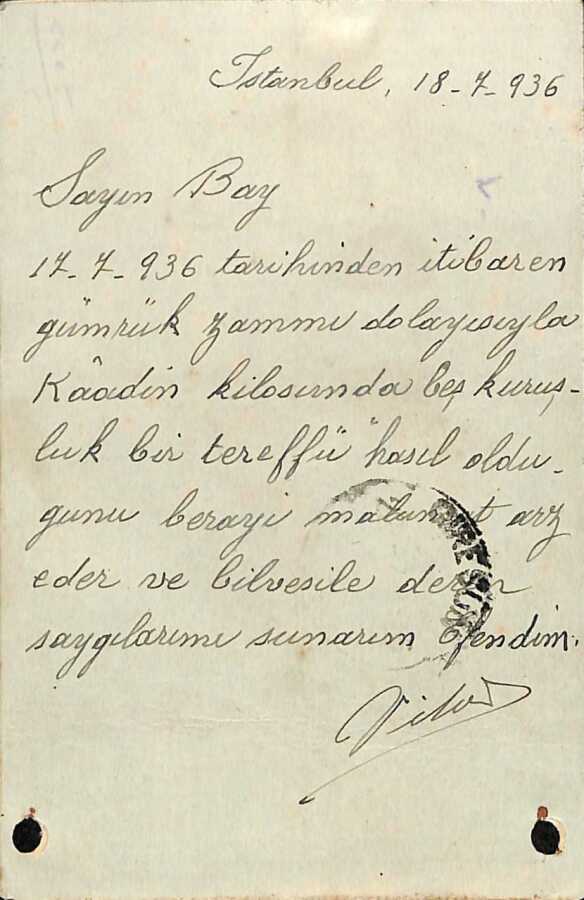 Istanbul, 18-7-936
Sayın Bay
17-7-936 tarihinden itibaren
gümrük zammı dolayısıyla
Kâadin kilosunda beş kuruş-
luk bir tereffü hasıl oldu-
gunu berayi malumat arz
eder ve bilvesile derin
saygılarımı sunarım Efendim.